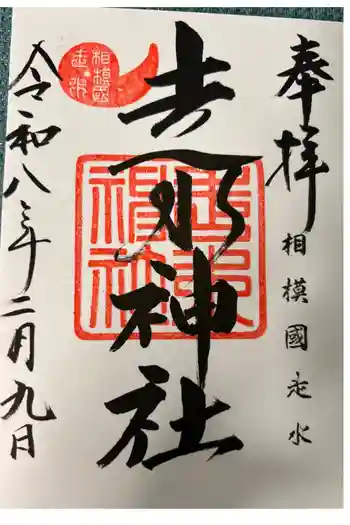 奉拝
相模國走水
走水神社
相模國
走水
走水神社
令和八年二月九日